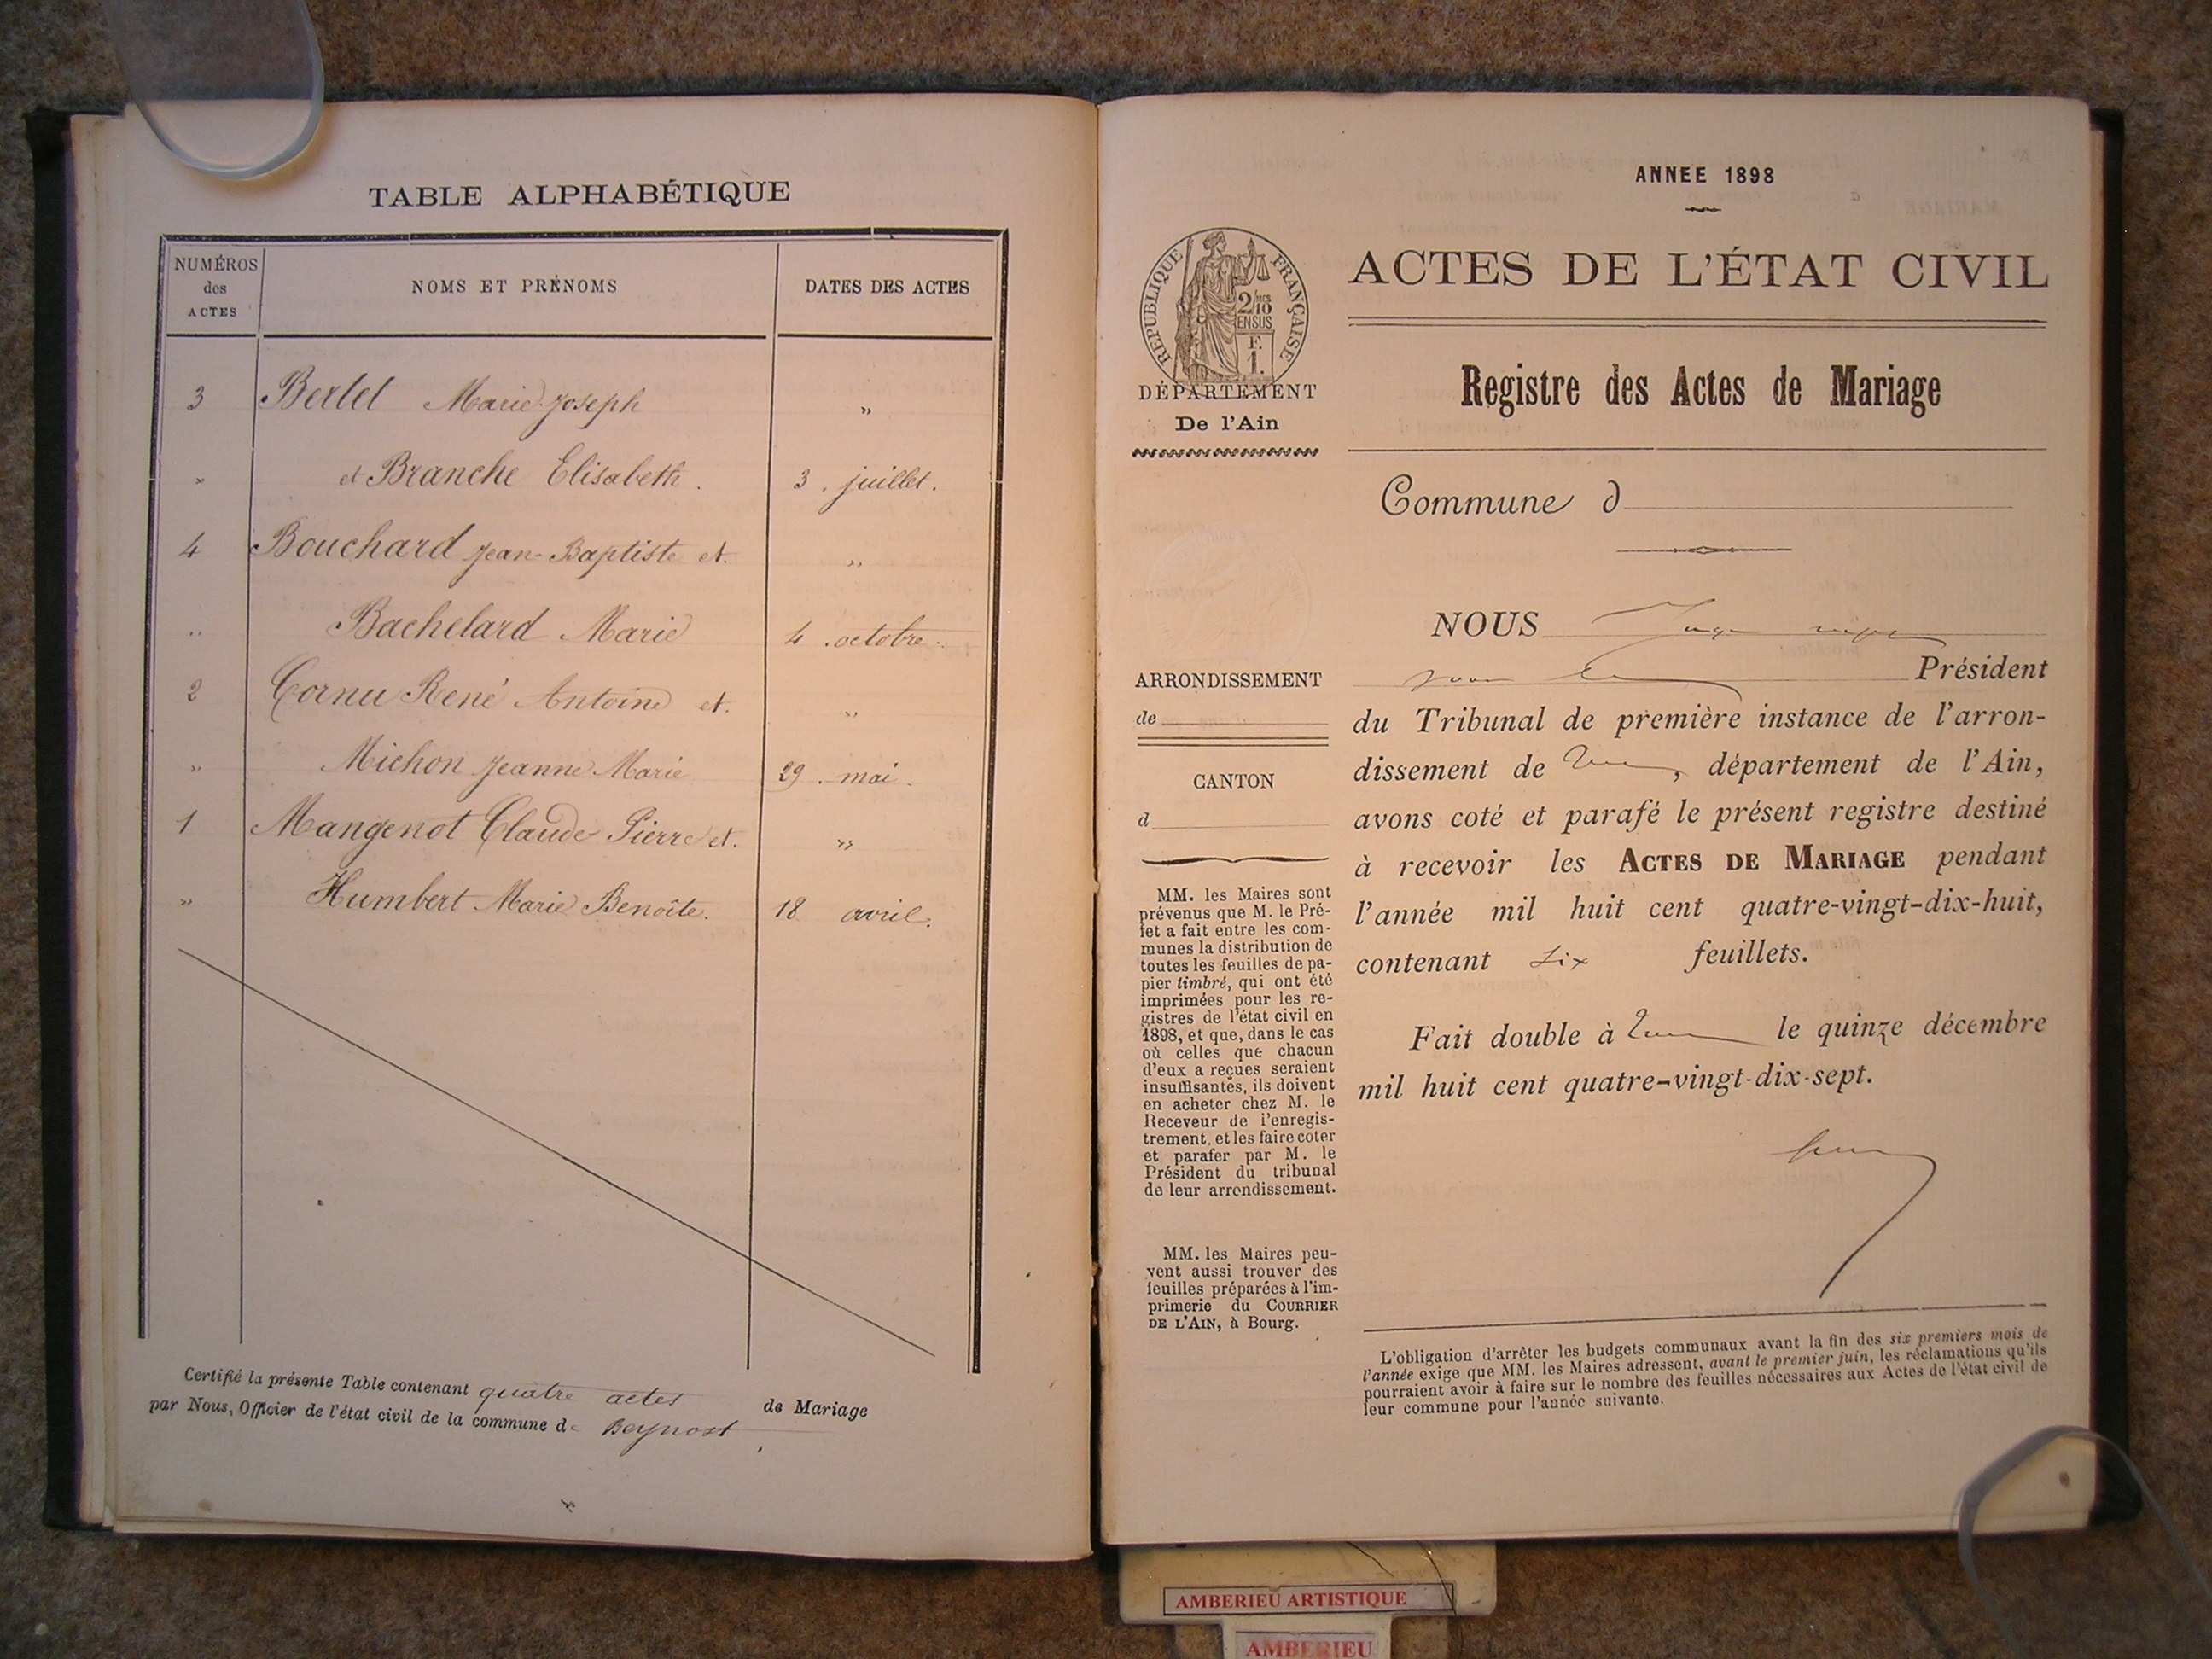 TABLE ALPHABÉTIQUE
NUMÉROS des ACTES
NOMS ET PRÉNOMS
DATES DES ACTES
3 Bertet Marie-Joseph "
" et Branche Elisabeth. 3. juillet.
4 Bouchard Jean-Baptiste et. "
" Bachelard Marie 4. octobre.
2 Cornu René Antoine et. "
" Michon Jeanne Marie 29. mai.
1 Mangenot Claude Pierre et. "
" Humbert Marie Benoîte. 18 avril.
Certifié la présente Table contenant quatre actes de Mariage
par Nous, Officier de l'état civil de la commune de Beynost
ANNEE 1898
RÉPUBLIQUE FRANÇAISE
2/10
EN SUS
F.
1.
DÉPARTEMENT
De l'Ain
ARRONDISSEMENT
de
CANTON
d
MM. les Maires sont
prévenus que M. le Pré-
fet a fait entre les com-
munes la distribution de
toutes les feuilles de pa-
pier timbré, qui ont été
imprimées pour les re-
gistres de l'état civil en
1898, et que, dans le cas
où celles que chacun
d'eux a reçues seraient
insuffisantes, ils doivent
en acheter chez M. le
Receveur de l'enregis-
trement, et les faire coter
et parafer par M. le
Président du tribunal
de leur arrondissement.
MM. les Maires peu-
vent aussi trouver des
feuilles préparées à l'im-
primerie du COURRIER
DE L'AIN, à Bourg.
ACTES DE L'ÉTAT CIVIL
Registre des Actes de Mariage
Commune d
NOUS
Président
du Tribunal de première instance de l'arron-
dissement de , département de l'Ain,
avons coté et parafé le présent registre destiné
à recevoir les ACTES DE MARIAGE pendant
l'année mil huit cent quatre-vingt-dix-huit,
contenant six feuillets.
Fait double à le quinze décembre
mil huit cent quatre-vingt-dix-sept.
L'obligation d'arrêter les budgets communaux avant la fin des six premiers mois de
l'année exige que MM. les Maires adressent, avant le premier juin, les réclamations qu'ils
pourraient avoir à faire sur le nombre des feuilles nécessaires aux Actes de l'état civil de
leur commune pour l'année suivante.
AMBERIEU ARTISTIQUE
AMBERIEU